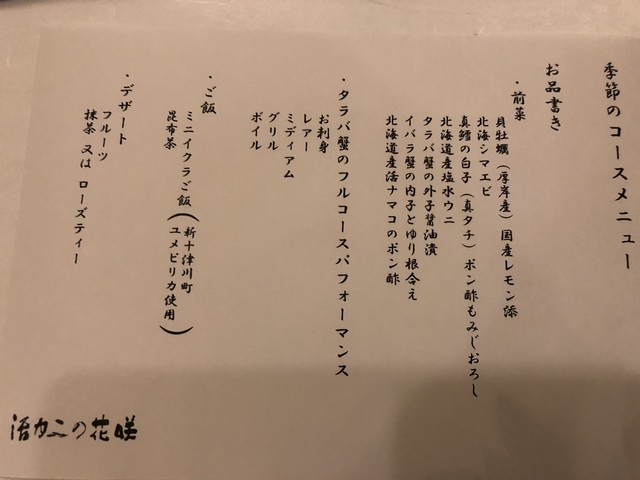 季節のコースメニュー
お品書き
・前菜
貝牡蠣（厚岸産）国産レモン添
北海シマエビ
真鱈の白子（真タチ）ポン酢もみじおろし
北海道産塩水ウニ
タラバ蟹の外子醤油漬
イバラ蟹の内子とゆり根合え
北海道産活ナマコのポン酢
・タラバ蟹のフルコースパフォーマンス
お刺身
レアー
ミディアム
グリル
ボイル
・ご飯
ミニイクラご飯（新十津川町
ユメピリカ使用）
昆布茶
・デザート
フルーツ
抹茶 又は ローズティー
活カニの花咲